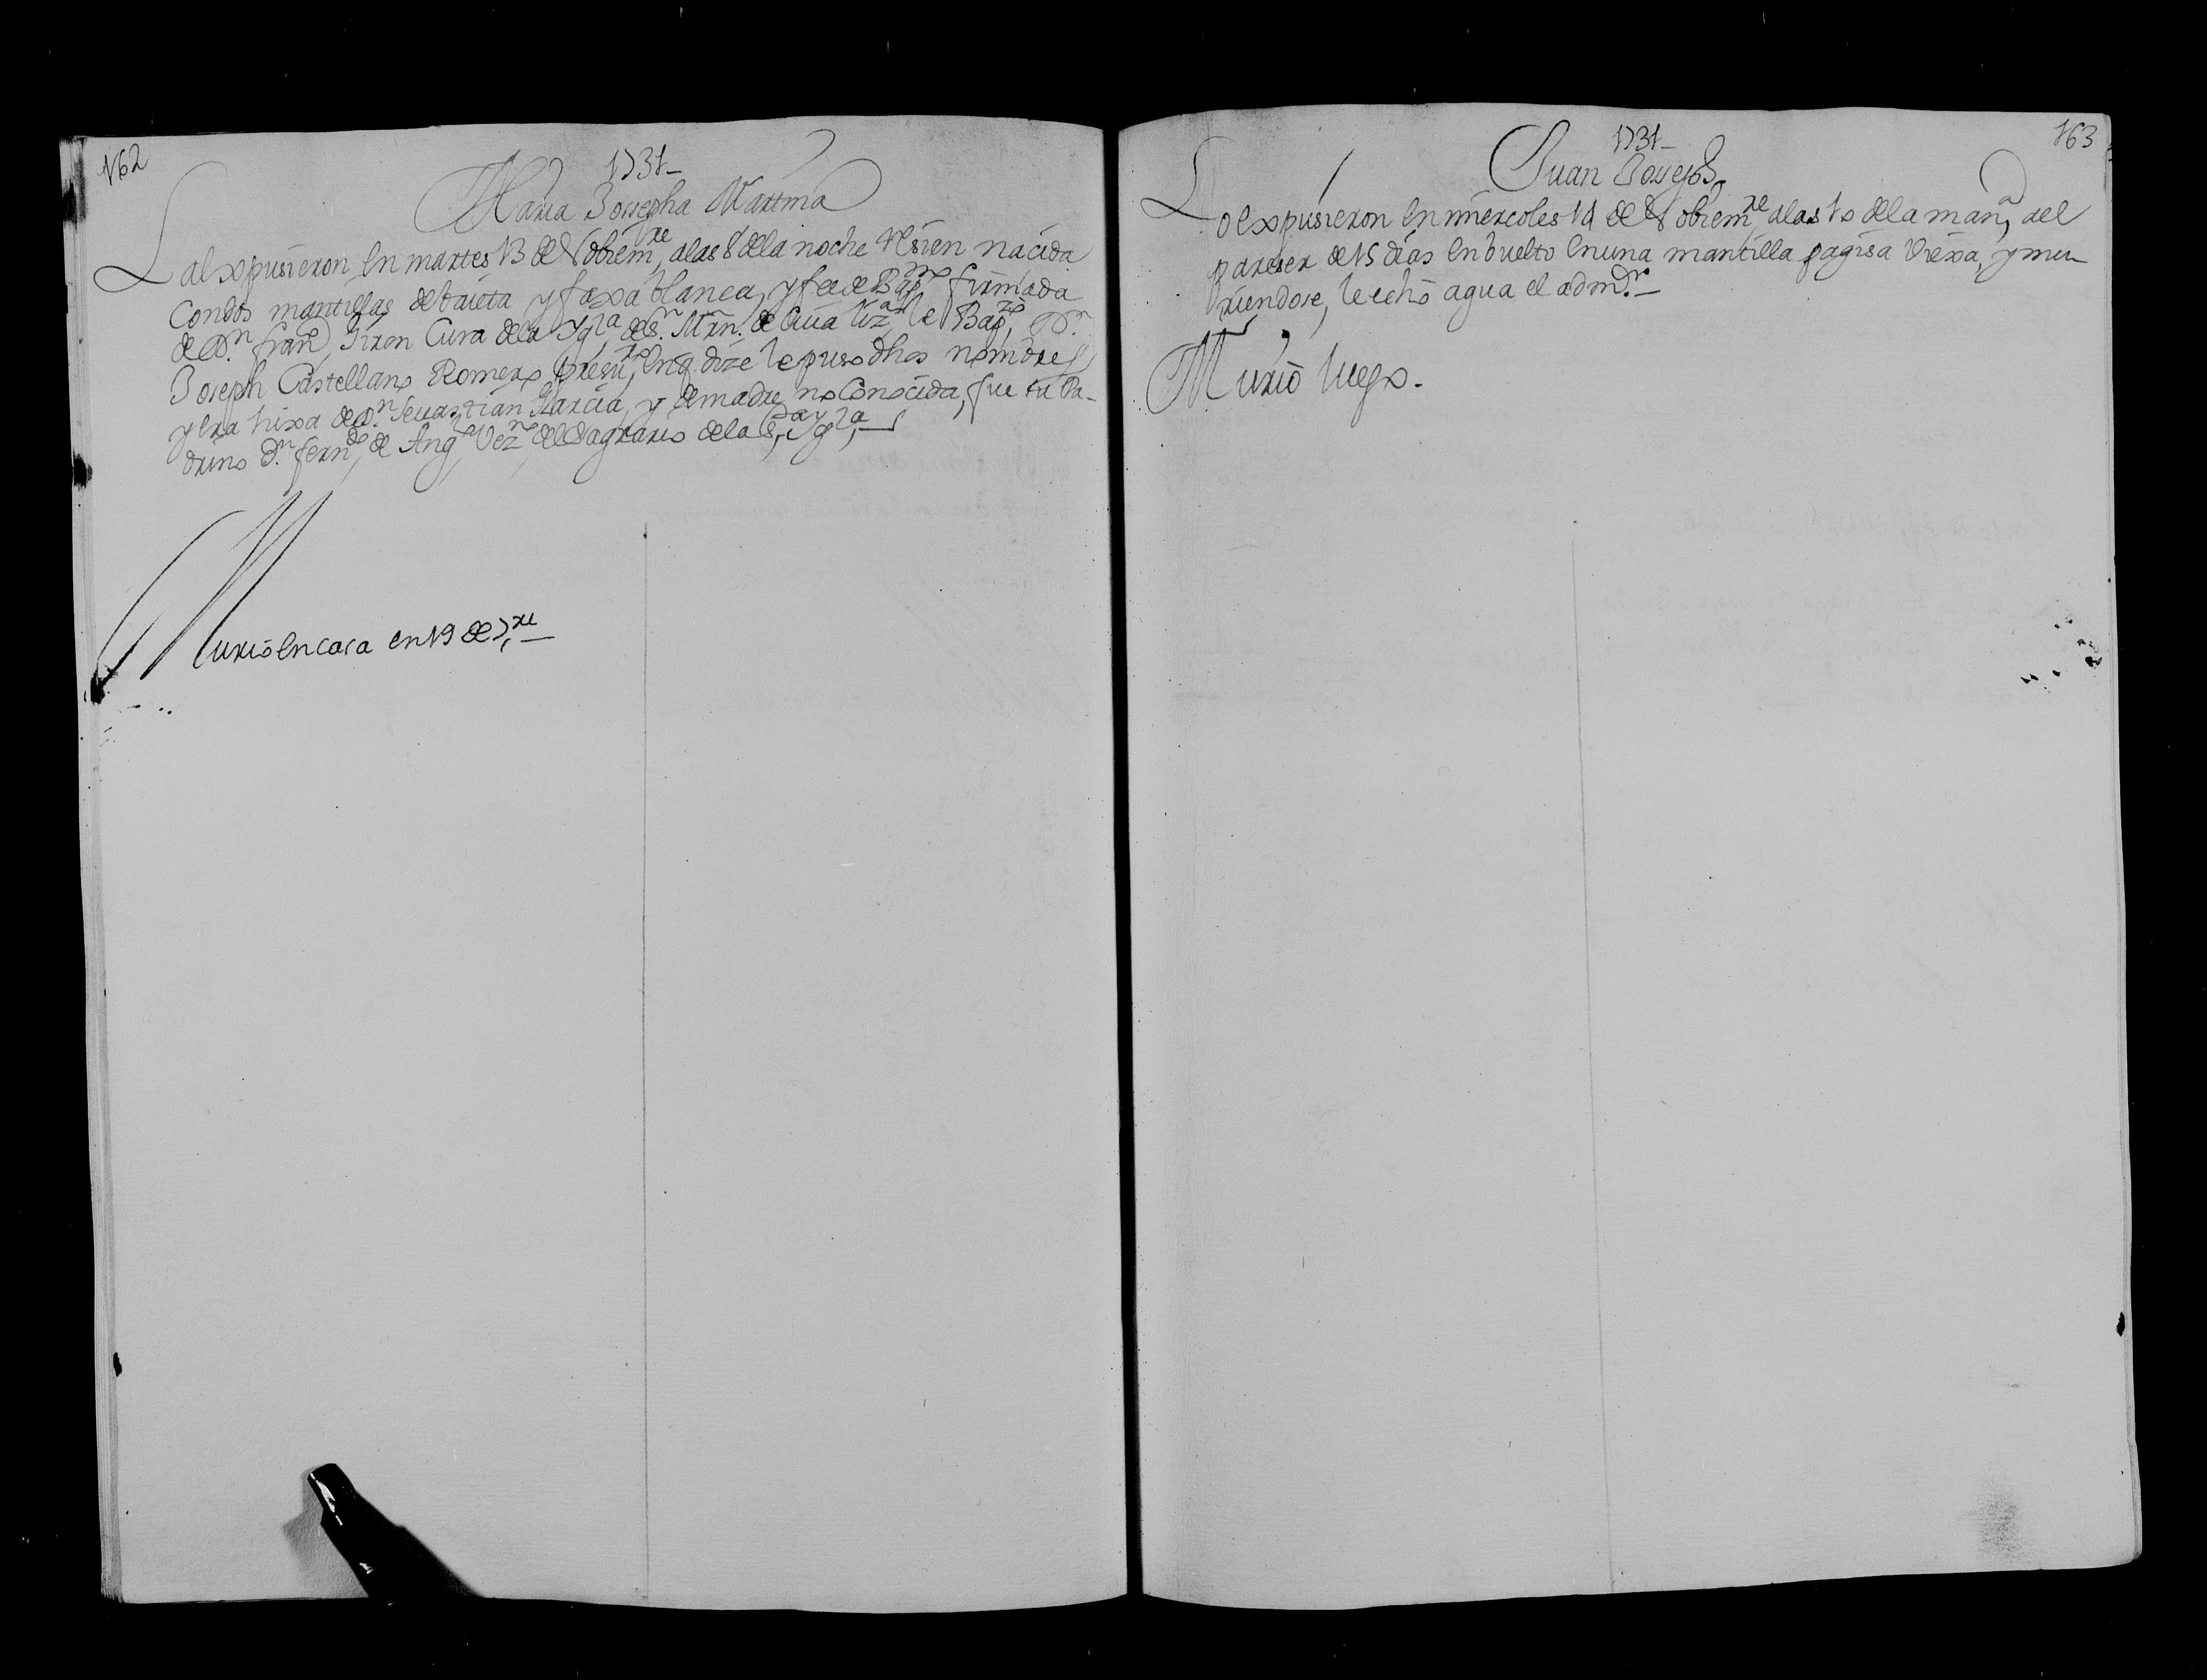 162
1731-
Maria Josepha Martina
La expusieron en martes 13 de Nobiem,re a las 8 de la noche resien nacida
Con dos mantillas de baieta y faxa blanca, y fee de Bap,mo firmada
de Dn. fran,co Giron Cura de la Ygl,a de Sn. Mrn. de esta la Bap,zo Dn.
Joseph Castellano Romero presu,ro en q. dize le puso dhos nombres
y era hixa de Dn Sevastian Garcia, y de madre no Conocida, fue su Pa-
drino Dn. fern,do de Ang,lo Vez,no del Sagrario de la S,ta Ygl,a
Murio en casa en 19 de
163
1731-
Juan Joseph
Lo expusieron en miercoles 14 de Nobiem,re a las 10 de la man,a, al
pareser de 15 dias enbuelto en una mantilla pagisa biexa, y mu
riendose, le echo agua el adm.or
Murio luego.